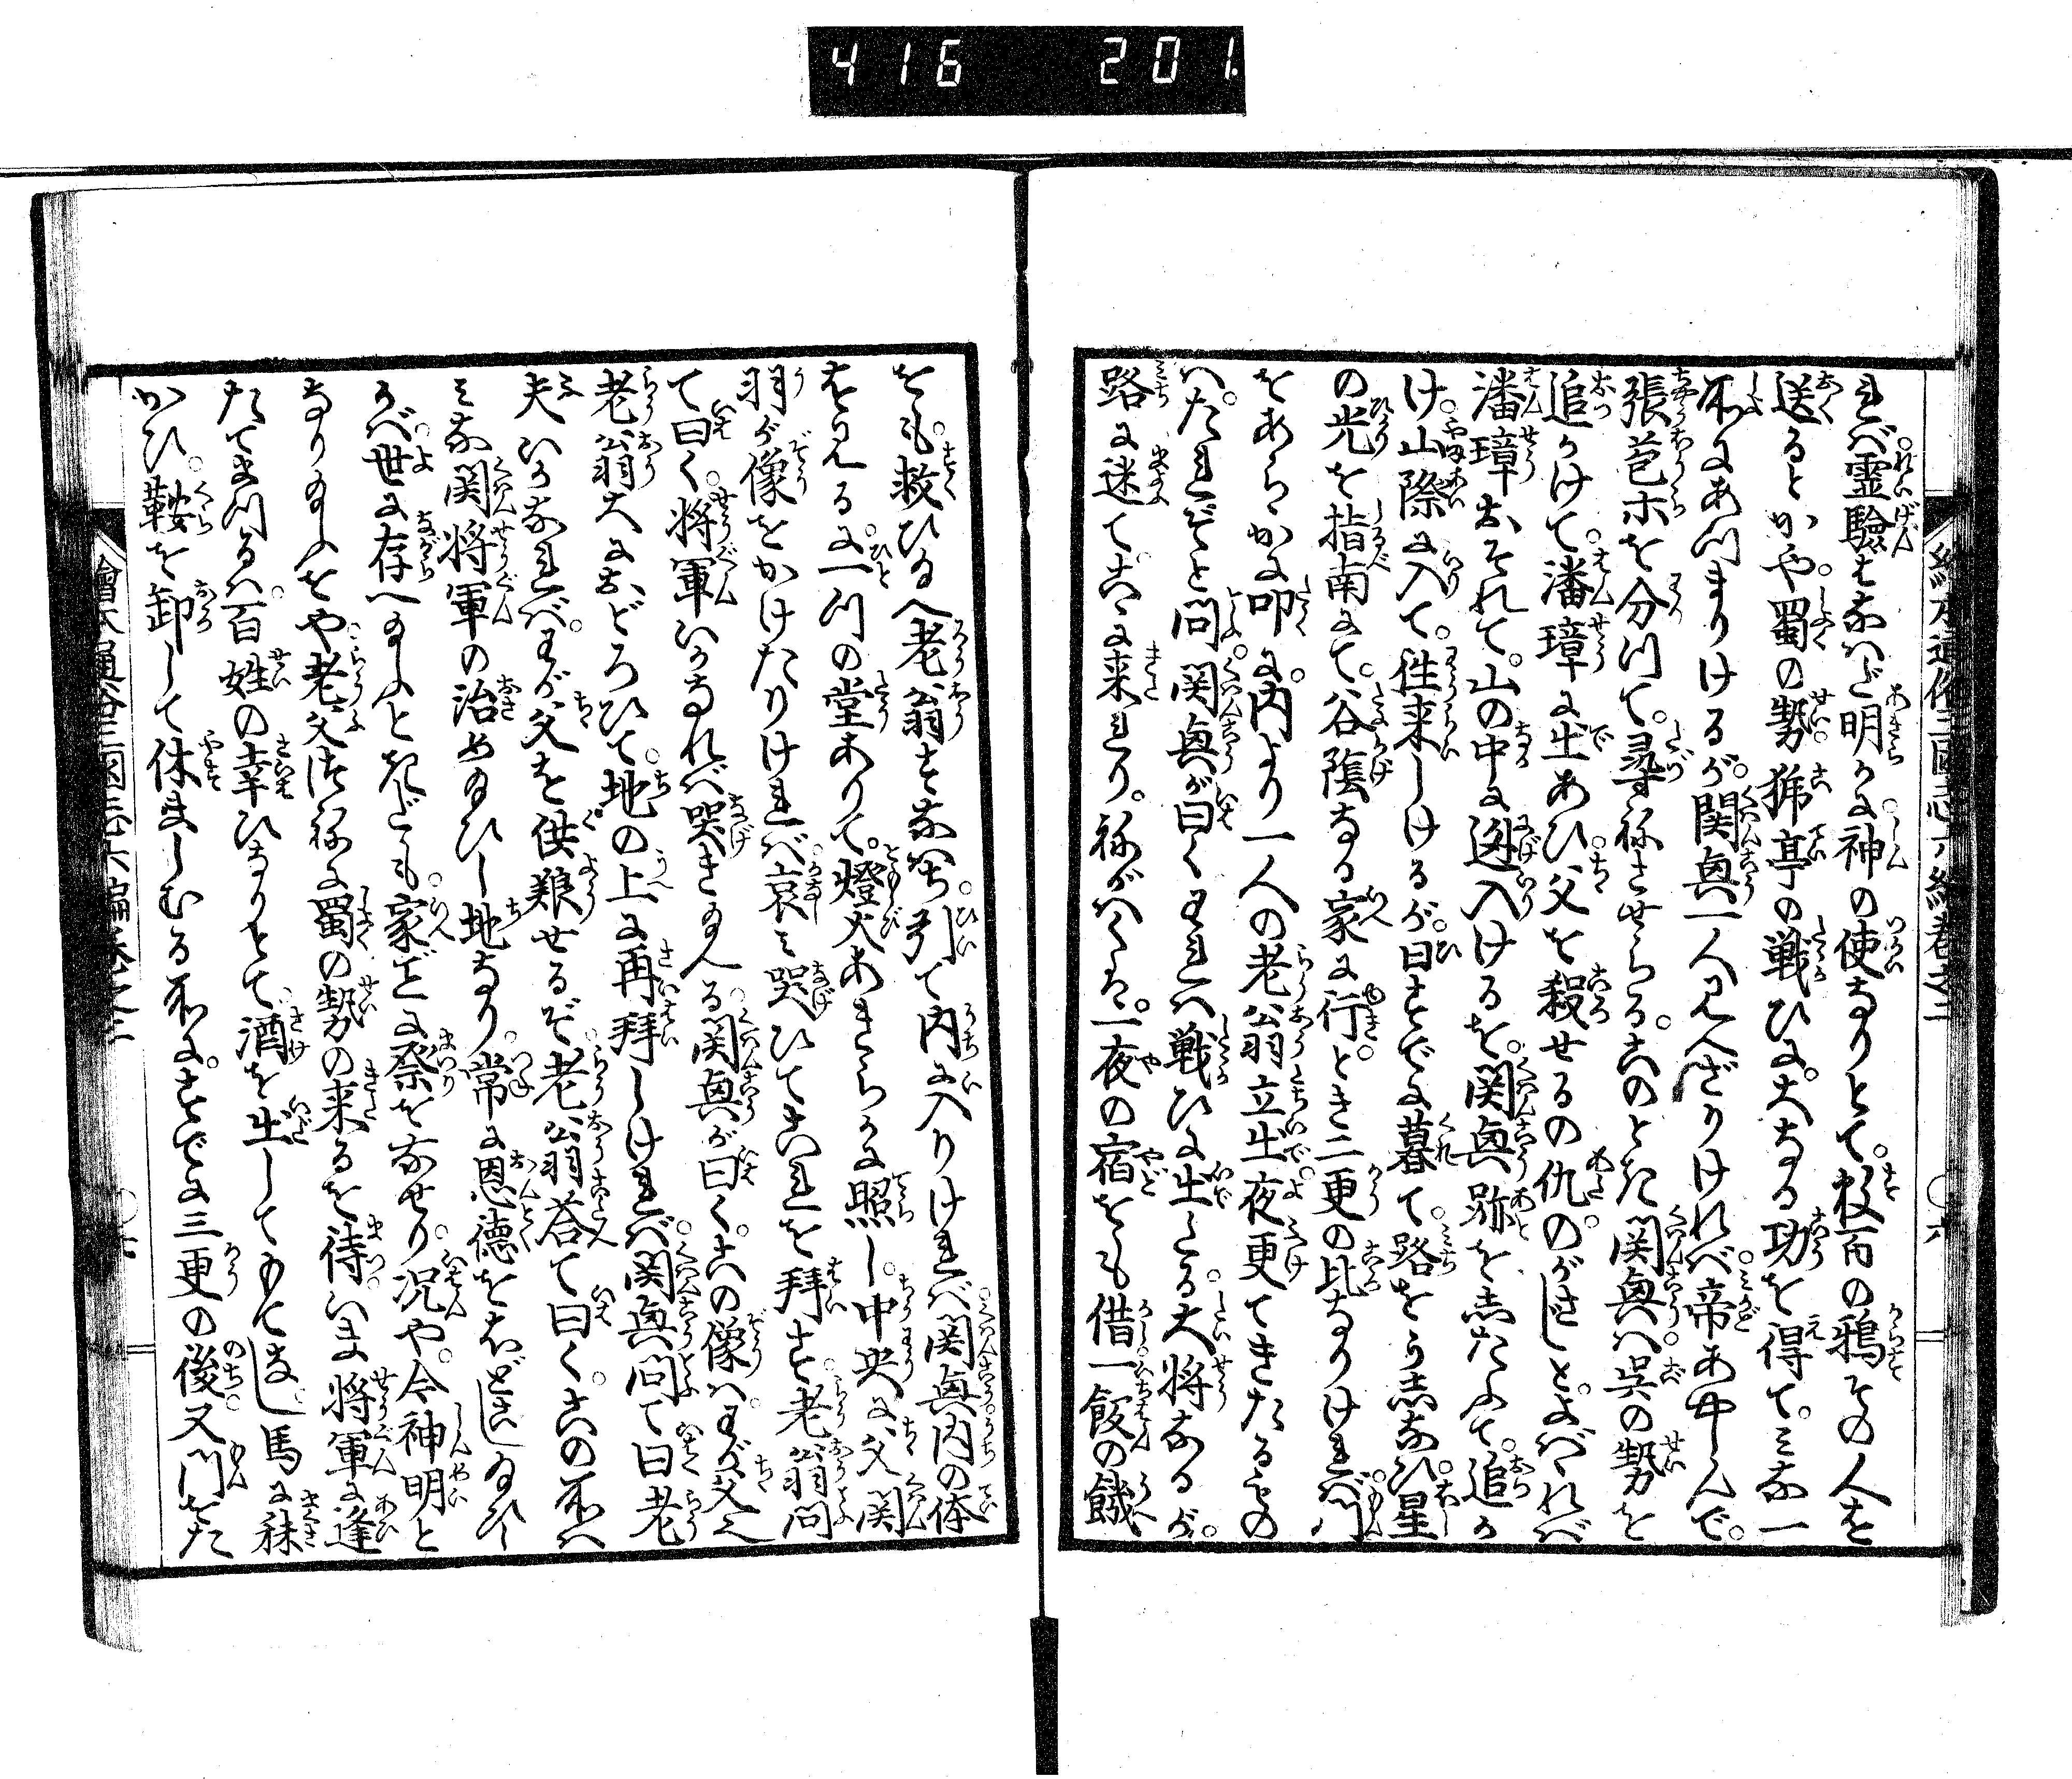 416 201
れば霊験はなはだ明らかに神の使なりとて数百の鴉その人を
送るとかや蜀の勢猇亭の戦ひに大なる功を得てみな一
所にあつまりけるが関興一人見へざりければ帝あやしんで
張苞ホを分つて尋ねさせらるこのとき関興ハ呉の勢を
追かけて潘璋に出あひ父を殺せるの仇のがさじとよばゝれば
潘璋おそれて山の中に迯入けるを関興跡をしたふて追か
け山際に入て徃来しけるが日すでに暮て路をうしなひ星
の光を指南にて谷陰なる家に行とき二更の比なりけれバ門
をあらゝかに叩に内より一人の老翁立出夜更てきたるもの
ハたれぞと問関興が曰くわれハ戦ひに出たる大将なるが
路に迷てこゝに来れりねがハくは一夜の宿をも借一飯の餓
をも救ひ給へ老翁すなハち引て内に入りければ関興内の体
をみるに一つの堂ありて燈火あきらかに照し中央に父関
羽が像をかけたりければ哀み哭ひてこれを拝す老翁問
て曰く将軍いかなれバ哭き給へる関興が曰くこの像ハわが父也
老翁大におどろひて地の上に再拝しければ関興問て曰老
夫いかなれバわが父を供粮せるぞ老翁荅て曰くこの所ハ
みな関将軍の治め給ひし地なり常に恩徳をほどこし給ひし
かバ世に存へ給ふときだにも家ごとに祭をなせり况や今神明と
なり給ふをや老父つねに蜀の勢の来るを待いま将軍に逢
たてまつるハ百姓の幸ひなりとて酒を出してもてなし馬に秣
かひ鞍を卸して休ましむる所にすでに三更の後又門をた
繪本通俗三國志六編巻之二